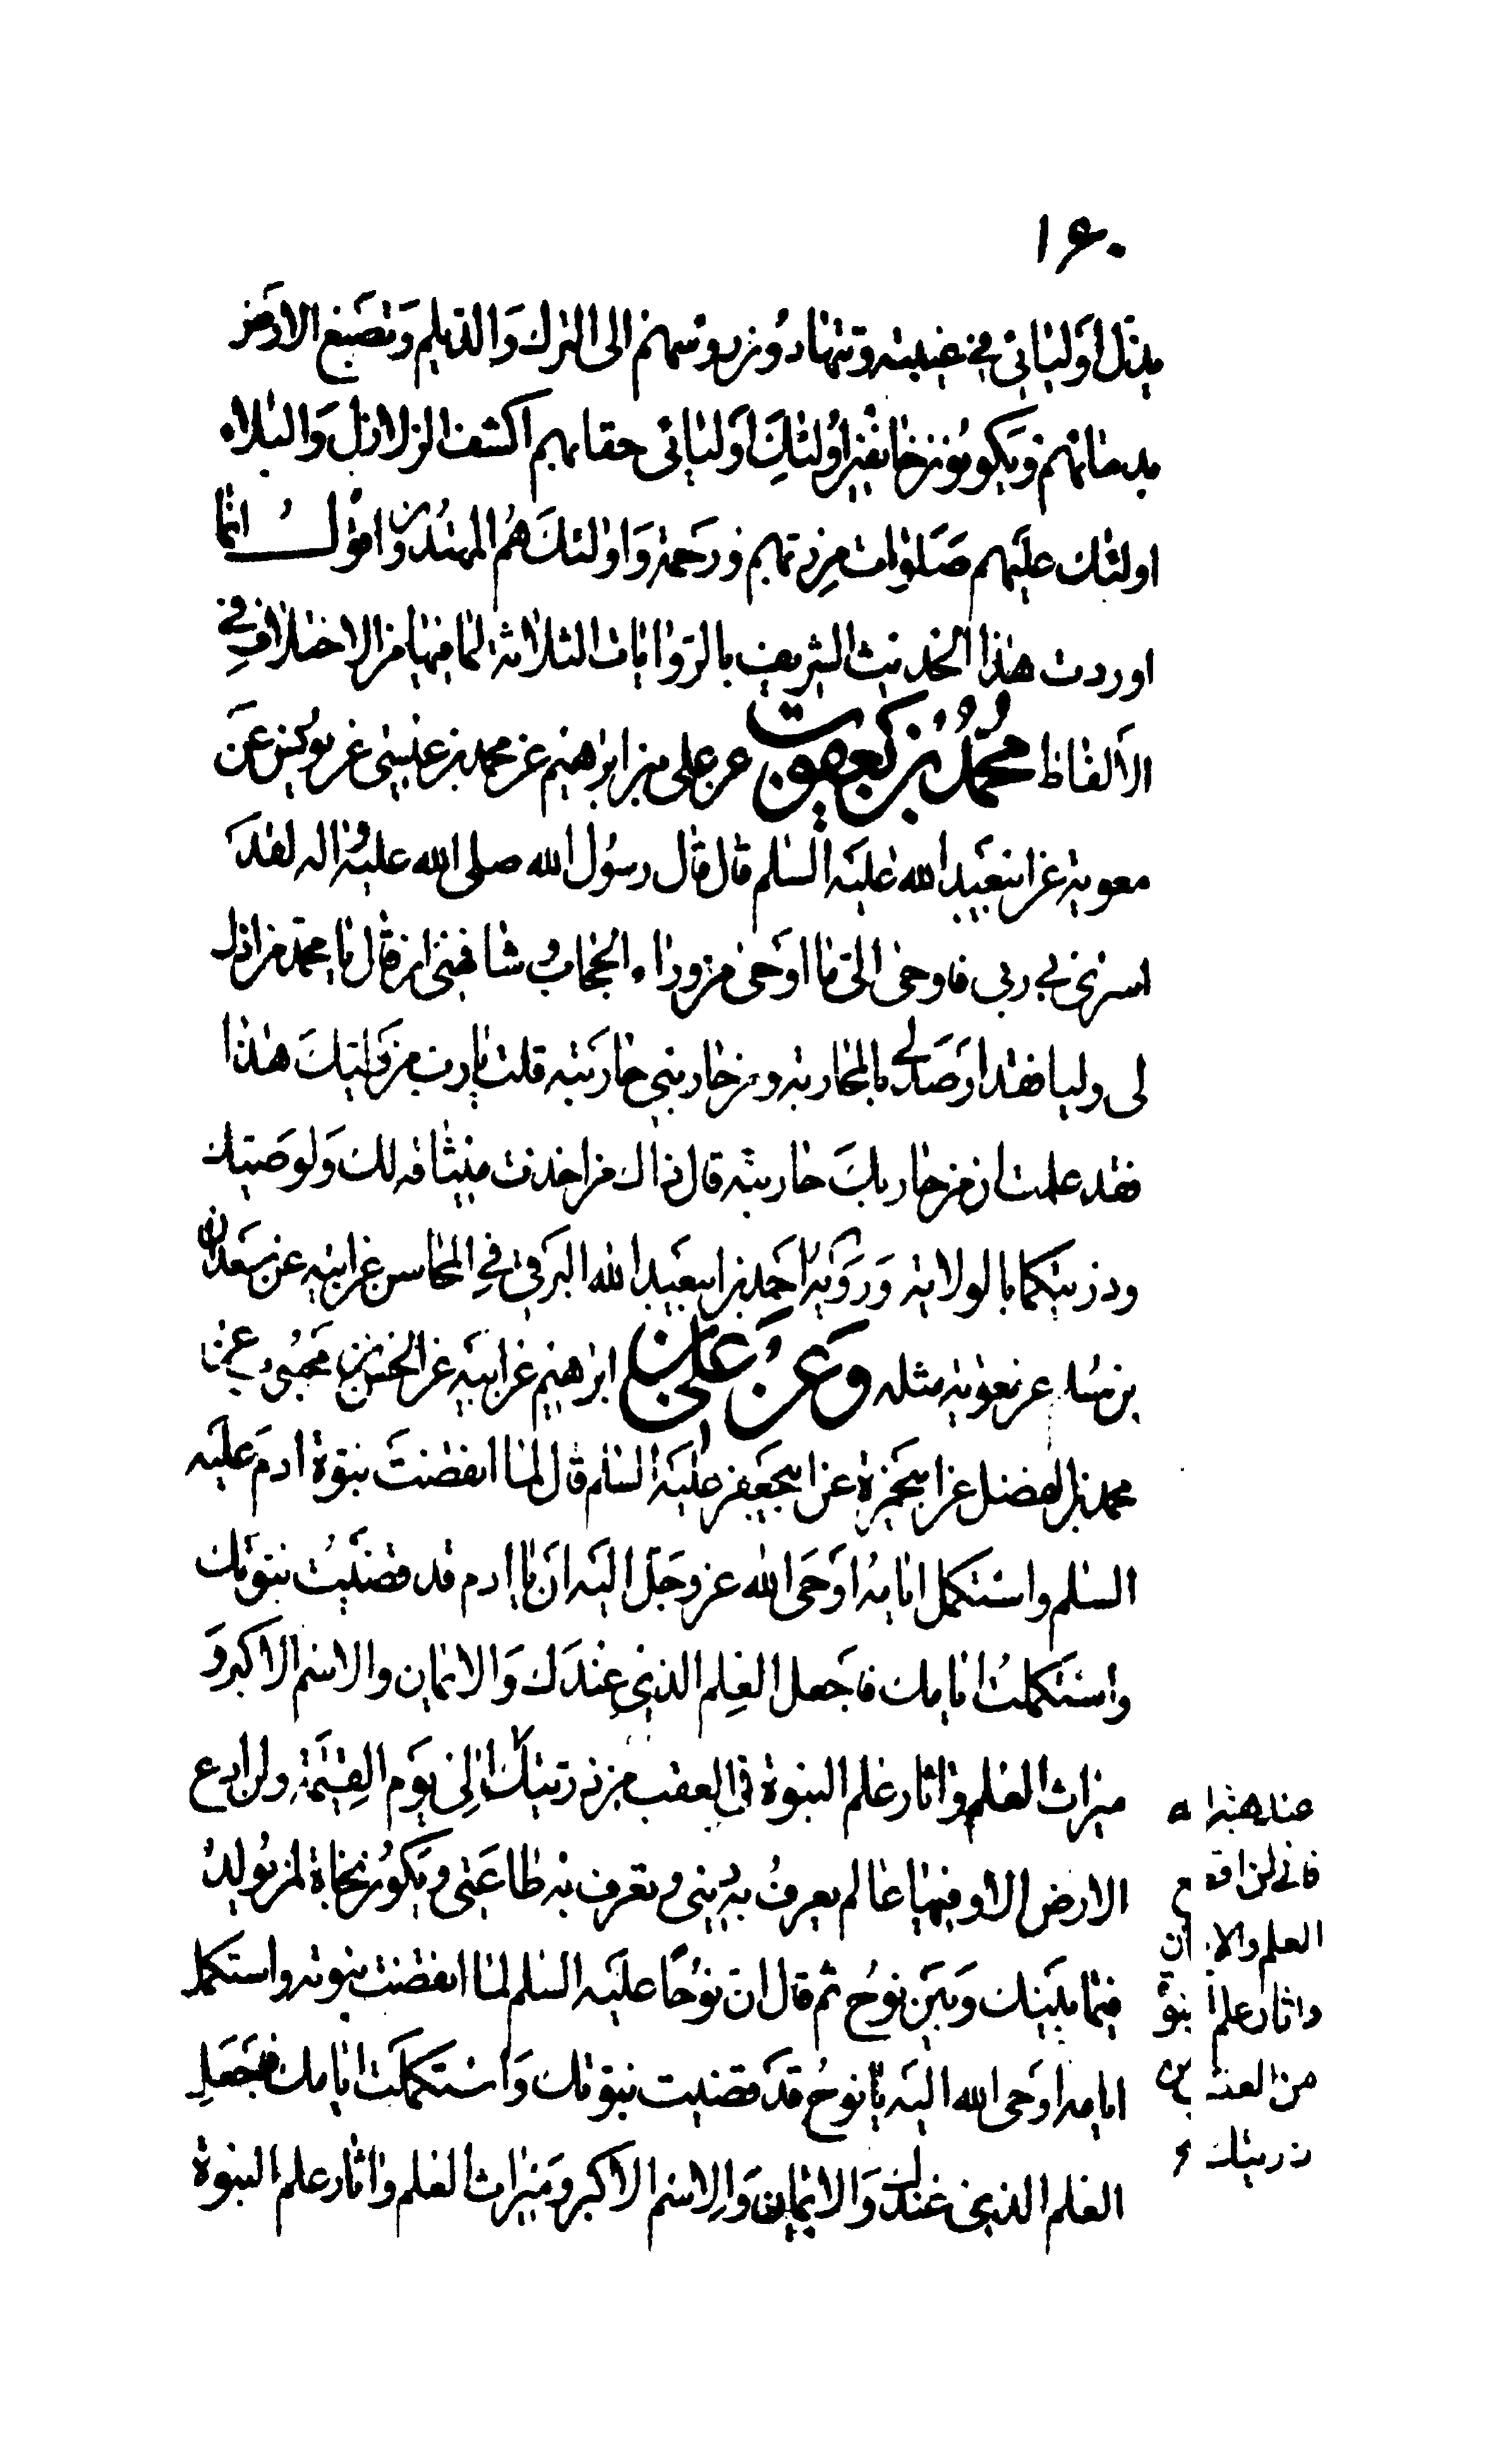 ١٦٠
يذل اوليائى في غيبته وتتهادون رءوسهم الى الترك والديلم وتصبغ الارض
بدمائهم ويكونون خائفين اولئك اوليائى حقا بهم اكشف الزلازل والبلاء
اولئك عليهم صلوات من ربهم ورحمة واولئك هم المهتدون اقول انما
اوردت هذا الحديث الشريف بالروايات الثلاثة لما فيها من الاختلاف في
الالفاظ محمد بن يعقوب عن على بن ابرهيم عن محمد بن عيسى عن يونس عن
معوية عن ابيعبد الله عليه السلم قال قال رسول الله صلى الله عليه واله لقد
اسرى بي ربى فاوحى الى ما اوحى من وراء الحجاب وشافهنى ان قال يا محمد من اذل
لى وليا فقد ارصد لي بالمحاربة ومن حاربنى حاربته قلت يا رب من وليك هذا
فقد علمت ان من حاربك حاربته قال ذاك من اخذت ميثاقه لك ولوصيك
وذريتكما بالولاية وروى احمد بن ابيعبد الله البرقى في المحاسن عن ابيه عن سعدان
بن مسلم عن معوية مثله وعن على بن ابرهيم عن ابيه عن الحسن بن محبوب عن
محمد بن الفضل عن ابيحمزة عن ابيجعفر عليه السلم قال لما انقضت نبوة ادم عليه
السلم واستكمل ايامه اوحى الله عز وجل اليه ان يا ادم قد قضيت نبوتك
واستكملت ايامك فاجعل العلم الذى عندك والايمان والاسم الاكبر و
ميراث العلم واثار علم النبوة فى العقب من ذريتك الى يوم القيمة ولن ادع
الارض الا وفيها عالم يعرف به دينى وتعرف به طاعتى ويكون نجاة لمن يولد
فيما بينك وبين نوح ثم قال ان نوحا عليه السلم لما انقضت نبوته واستكمل
ايامه اوحى الله اليه يا نوح قد قضيت نبوتك واستكملت ايامك فاجعل
العلم الذى عندك والايمان والاسم الاكبر وميراث العلم واثار علم النبوة
عند هبة ا ه
فانى لن اق ع
العلم والا ان
واثار علم ا نبو
من العق من
ذريتك و